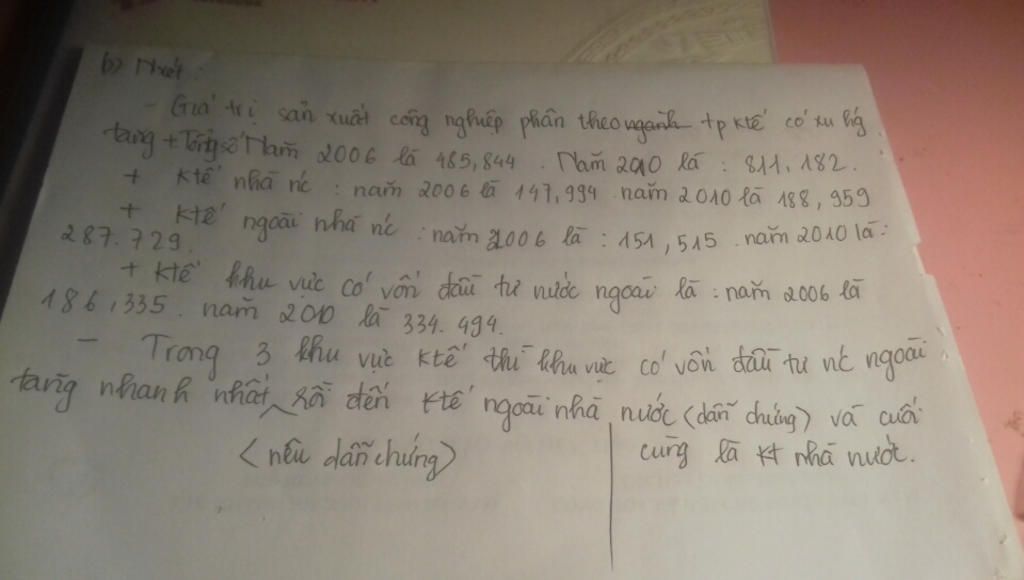 b) Nxét:
- Giá trị sản xuất công nghiệp phân theo ngành tp ktế có xu hg
tăng + Tổng số Năm 2006 là 485,844. Năm 2010 là : 811,182.
+ ktế nhà nc : năm 2006 là 147,994 năm 2010 là 188,959
+ ktế ngoài nhà nc : năm 2006 là : 151,515. năm 2010 là :
287.729.
+ ktế khu vực có vốn đầu tư nước ngoài là : năm 2006 là
186,335. năm 2010 là 334.494.
- Trong 3 khu vực ktế thì khu vực có vốn đầu tư nc ngoài
tăng nhanh nhất rồi đến ktế ngoài nhà nước (dẫn chứng) và cuối
<nêu dẫn chứng> cùng là kt nhà nước.